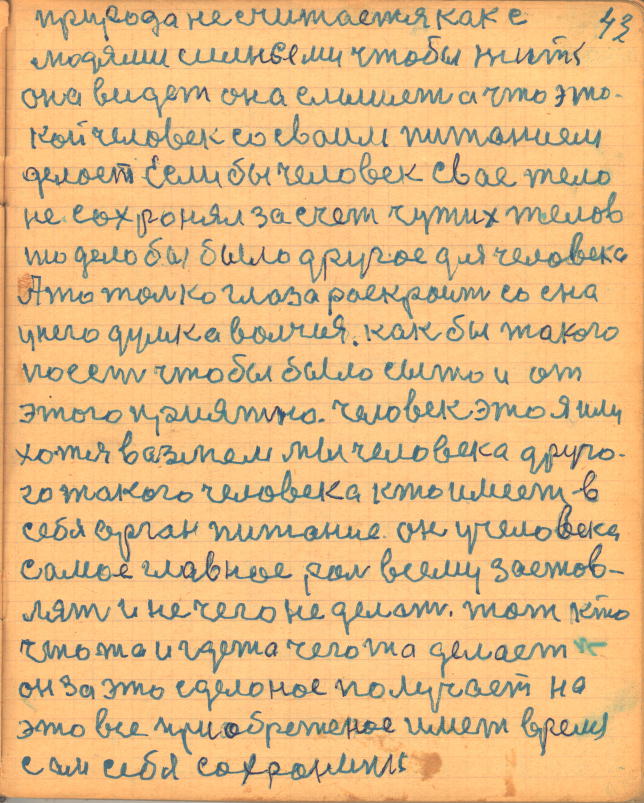 43
природа не считается как с
людями сильеми чтобы жить
она видет она слышет а что это-
кой человек со сваим питанием
делает Если бы человек свае тело
не сохронял за счет чутих телов
то дело бы было другое для человека
А то толко глаза раскроит со сна
у него думка волчия. как бы такого
посет чтобы было сыто и от
этого приятно. человек это я или
хотя вазмем мы человека друго-
го такого человека кто имеет в
себя орган питание. он у человека
самое главное рол всему застов-
лят и не чего не делат. тот кто
что та и гдета чегота делает
он за это сделоное получает на
это все приобретеное имет время
сам себя сохронить